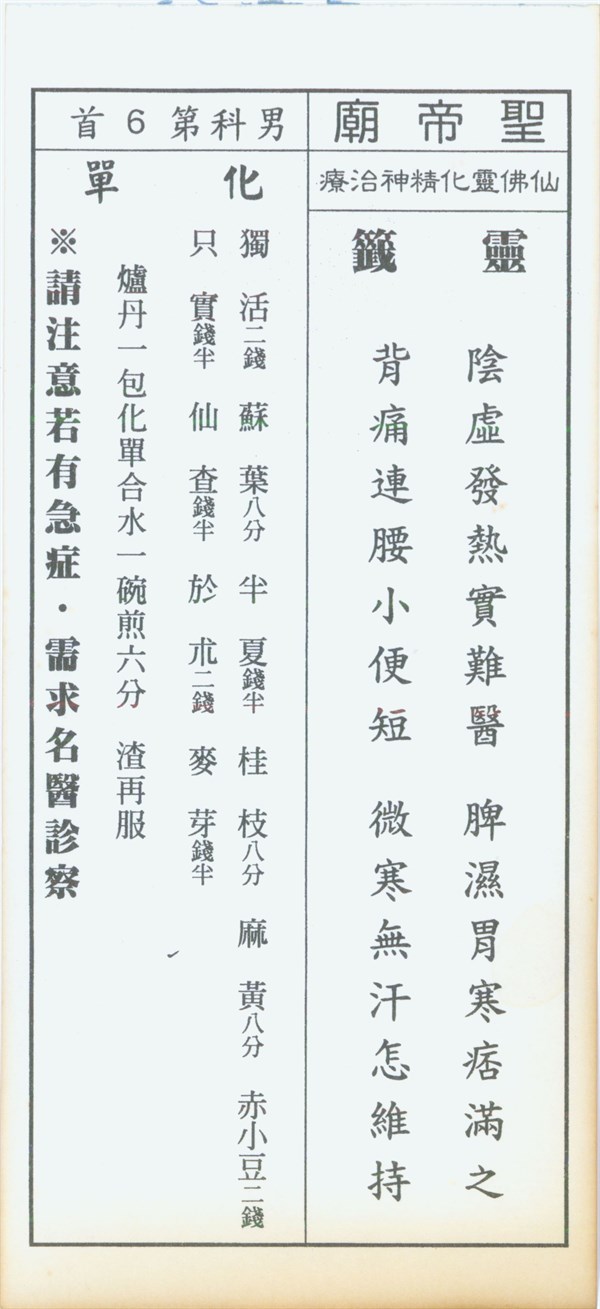 聖帝廟
仙佛靈化精神治療
靈籤
陰虛發熱實難醫 脾濕胃寒痞滿之
背痛連腰小便短 微寒無汗怎維持
男科第6首
化單
獨活二錢 蘇葉八分 半夏錢半 桂枝八分 麻黃八分 赤小豆二錢
只實錢半 仙查錢半 於朮二錢 麥芽錢半
爐丹一包化單合水一碗煎六分 渣再服
※請注意若有急症・需求名醫診察